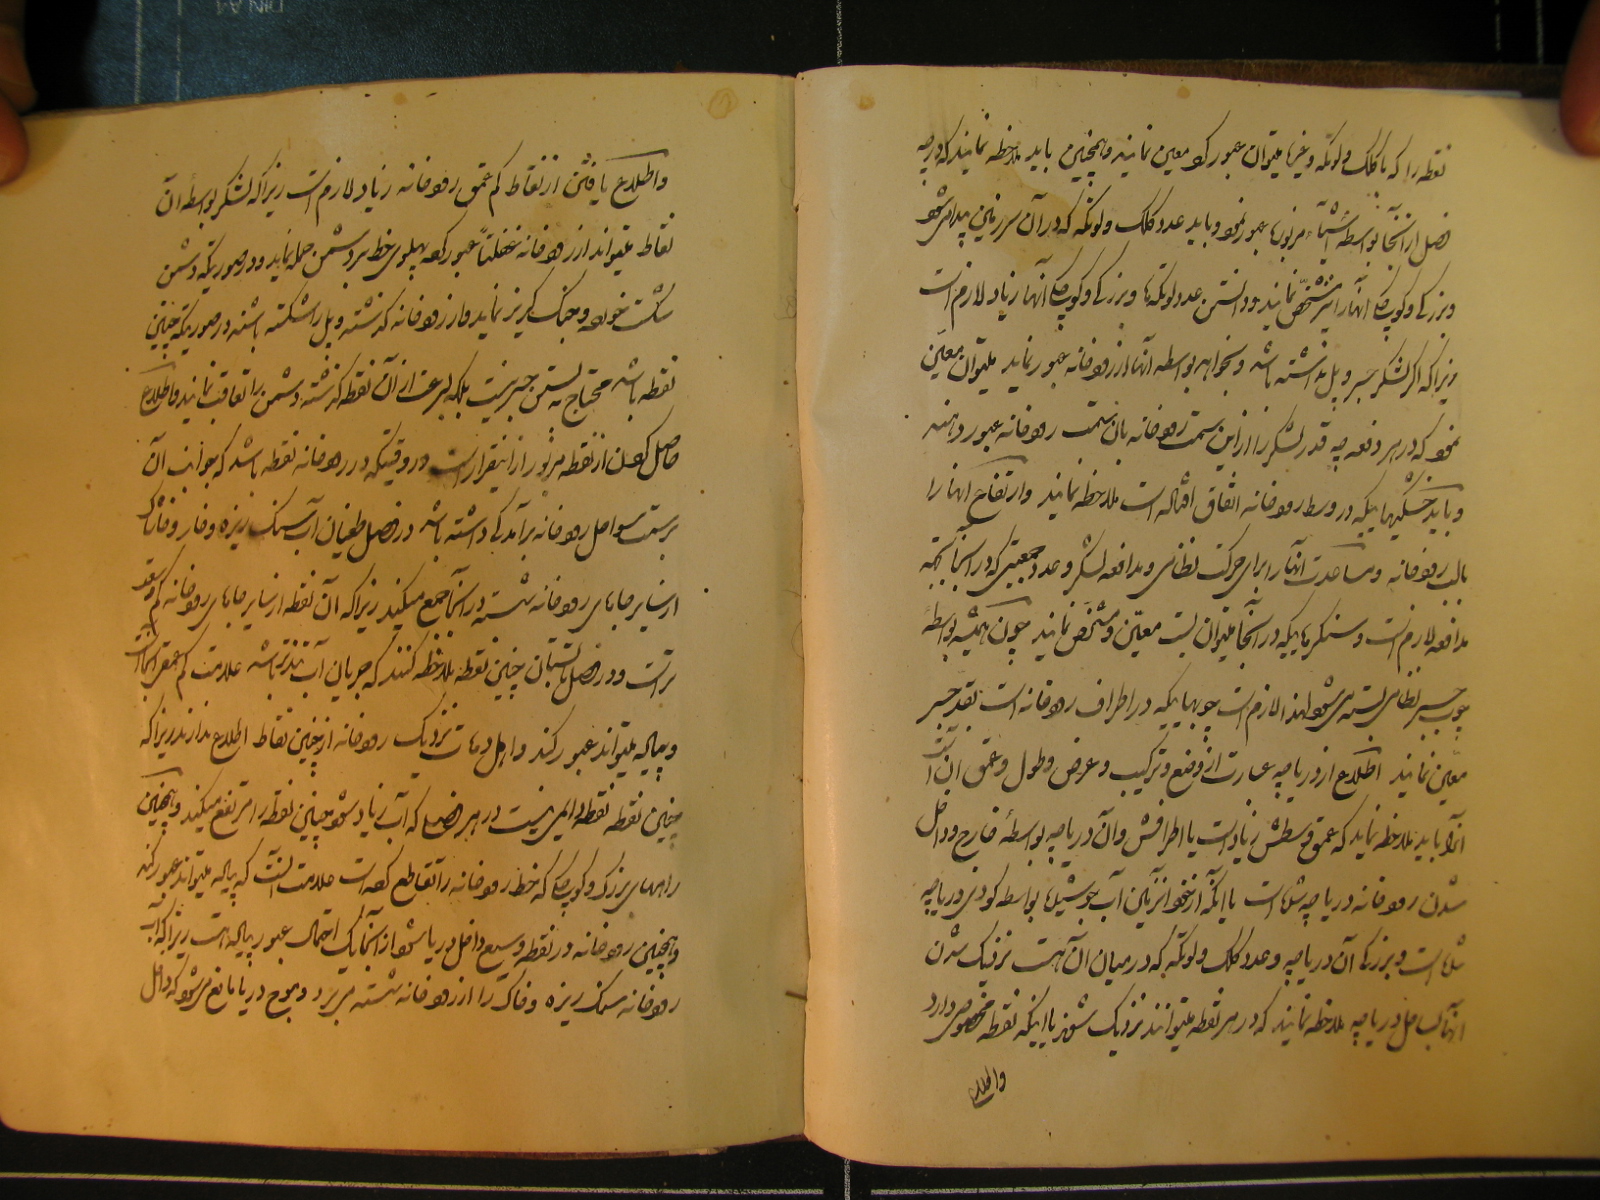 نقطه را که با کلک و لوتکه و غیرها میتوان عبور کرد معین نمایند و همچنین باید ملاحظه نمایند که در چه
فصل از آنجا بواسطهٔ اشیآء مزبورها عبور نمود و باید عدد کلک و لوتکه که در آن سرزمین پیدا می شود
و بزرگی و کوچکی آنها را نیز مشخّص نمایند و دانستن عدد لوتکه ها و بزرگی و کوچکی آنها زیاد لازم است
زیرا که اگر لشکر جسر و پل نداشته باشد و بخواهد بواسطه آنها از رودخانه عبور نماید میتوان معیّن
نمود که در هر دفعه چه قدر لشکر را از این سمت رودخانه بان سمت رودخانه عبور دادند
و باید خشکیهائیکه در وسط رودخانه اتفاق افتاده است ملاحظه نمایند و ارتفاع آنها را
بالب رودخانه و مساعدت آنها را برای حرکت نظامی و مدافعه لشکر و عدد جمعیتی که در آنجا بجهة
مدافعه لازم است و سنکرهائیکه در آنجا میتوان بست معیّن و مشخص نمایند چون همیشه بواسطهٔ
چوب جسر نظامی بسته می شود لهذا لازم است چوبهائیکه در اطراف رودخانه است بقدر جسر
معیّن نمایند اطلاع از دریاچه عبارت از وضع و ترکیب و عرض و طول و عمق آن است
اوّلا باید ملاحظه نماید که عمق وسطش زیاد است یا اطرافش و آن دریاچه بواسطهٔ خارج و داخل
شدن رودخانه دریاچه شده است یا اینکه از خود آنزمین آب جوشیده بواسطه کودی دریاچه
شده است و بزرگی آن دریاچه و عدد کلک و لوتکه که در میان آن هست نزدیک شدن
آنها بساحل دریاچه ملاحظه نمایند که در هر نقطه میتوانند نزدیک شوند یا اینکه نقطه مخصوصی دارد
و اطلاع
و اطلاع یافتن از نقاط کم عمق رودخانه زیاد لازم است زیرا که لشکر بواسطهٔ آن
نقاط میتواند از رودخانه غفلتاً عبور کرده پهلوی خط بر دشمن حمله نماید و در صورتیکه دشمن
شکست خورده و جنک گریز نماید و از رودخانه گذشته و پل را شکسته باشد در صورتیکه چنین
نقطه باشد محتاج به بستن جسر نیست بلکه بسرعت از آن نقطه گذشته دشمن را تعاقب نمایند و اطلاع
حاصل کردن از نقطه مزبور از اینقرار است در وقتیکه در رودخانه نقطه باشد که جوانب آن
برسمت سواحل رودخانه برآمدگی داشته باشد در فصل طغیان آب سنک ریزه و خار و خاشاک
از سایر جاهای رودخانه شسته در آنجا جمع میکند زیرا که آن نقطه از سایر جاهای رودخانه کم وسعت
تر است و در فصل تابستان چنین نقطه ملاحظه کنند که جریان آب تندتر باشد علامت کم عمقی آنجا است
و پیاله میتواند عبور کند و اهل دهات نزدیک رودخانه از چنین نقاط اطلاع ندارند زیرا که
چنین نقطه نقطه دایمی نیست در هر فصل که آب زیاد شود چنین نقطه را مرتفع میکند و همچنین
راههای بزرک و کوچک که خط رودخانه را تقاطع کرده است علامت آنست که پیاله میتواند عبور کند
و همچنین رودخانه در نقطه وسیع داخل دریا شود از آنجا یک احتمال عبور پیاله هست زیرا که آب
رودخانه سنک ریزه و خاک را از رودخانه شسته میبرد و موج دریا مانع می شود که داخل